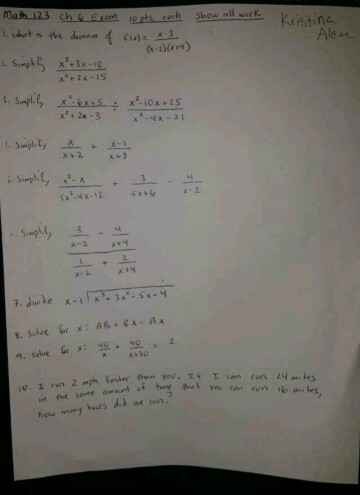 Math 123 Ch 6 Exam 10 pts each Show all work
Kristina
1. what is the domain of f(x) = x-3 / (x-2)(x+4)
Simplify x²+3x-10 / x²+2x-15
3. Simplify x²-6x+5 / x²+2x-3 ÷ x²-10x+25 / x²-4x-21
Simplify x / x+2 + x-1 / x+3
Simplify x²-x / 5x²-4x-12 + 3 / 5x+6 - 4 / x-2
Simplify 3 / x-2 - 4 / x+4
1 / x-2 + 2 / x+4
7. divide x-1 x³+3x²-5x-4
8. Solve for x: AB + BX = AX
9. solve for x: 40 / x + 40 / x+30 = 2
10. I run 2 mph faster than you. If I can run 24 miles
in the same amount of time that you can run 16 miles,
how many hours did we run?